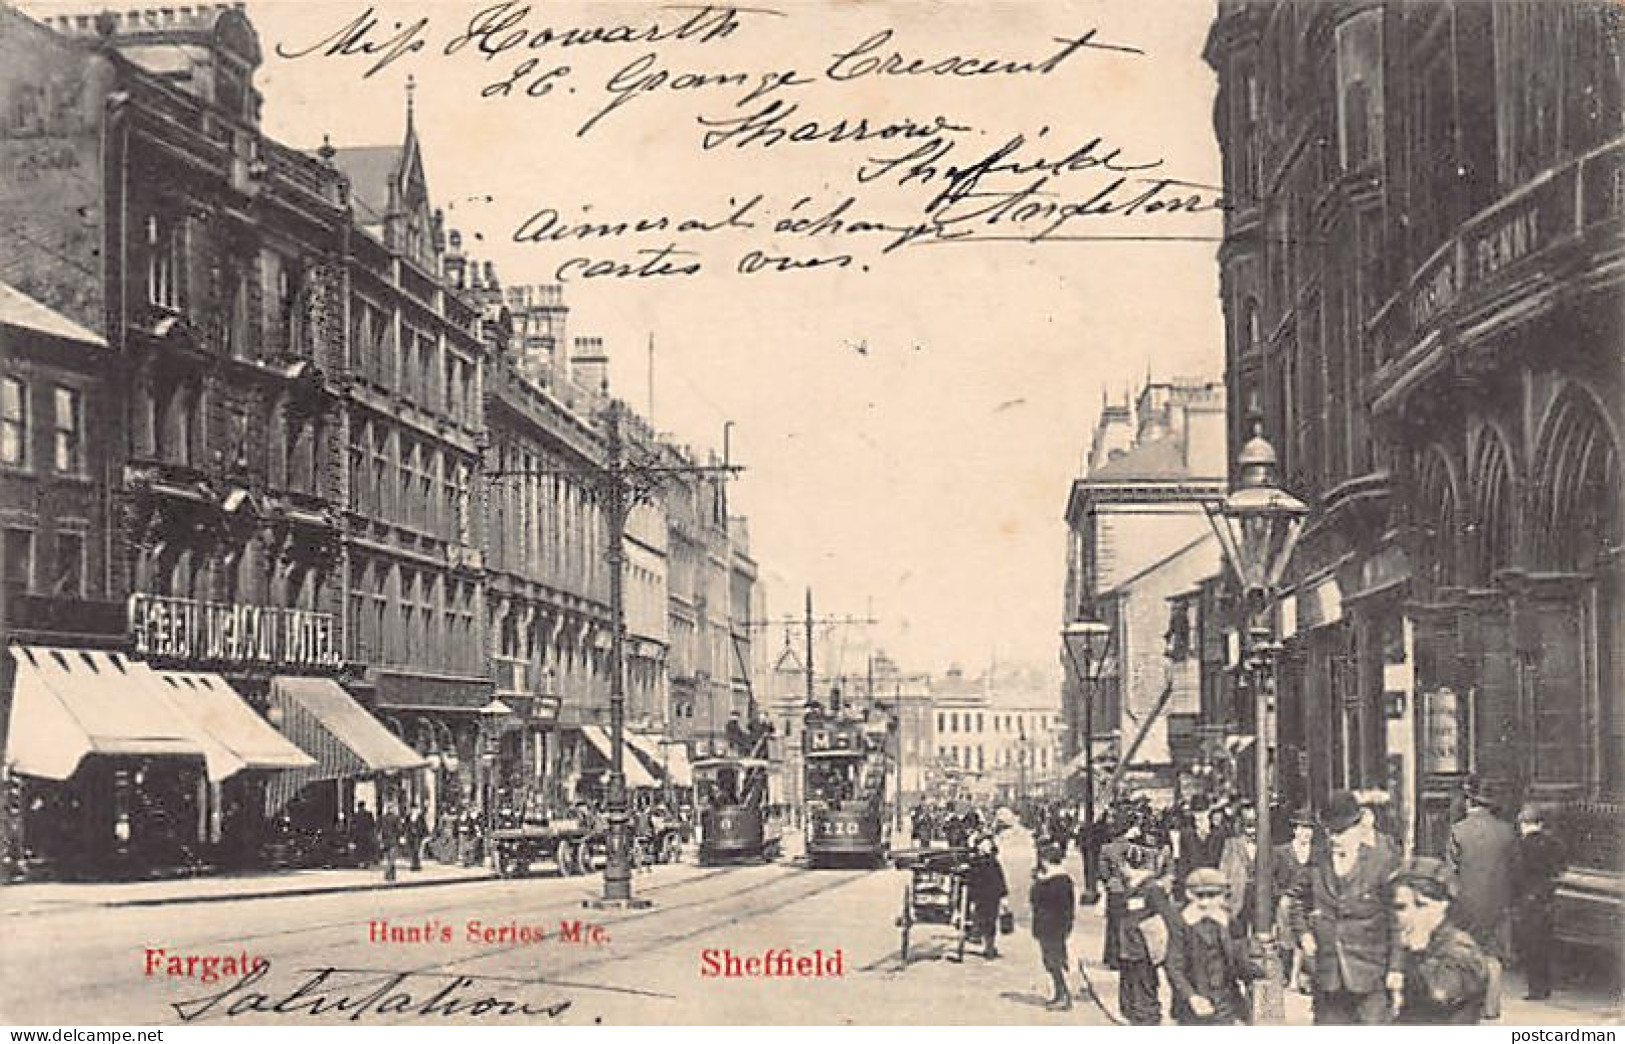 Miss Howarth
26. Grange Crescent
Sharrow.
Sheffield
Angleterre
Aimerait échanger
cartes vues.
PENNY
GREEN DRAGON HOTEL
110
Hunt's Series M/c.
Fargate
Sheffield
Salutations.
delcampe.net
postcardman